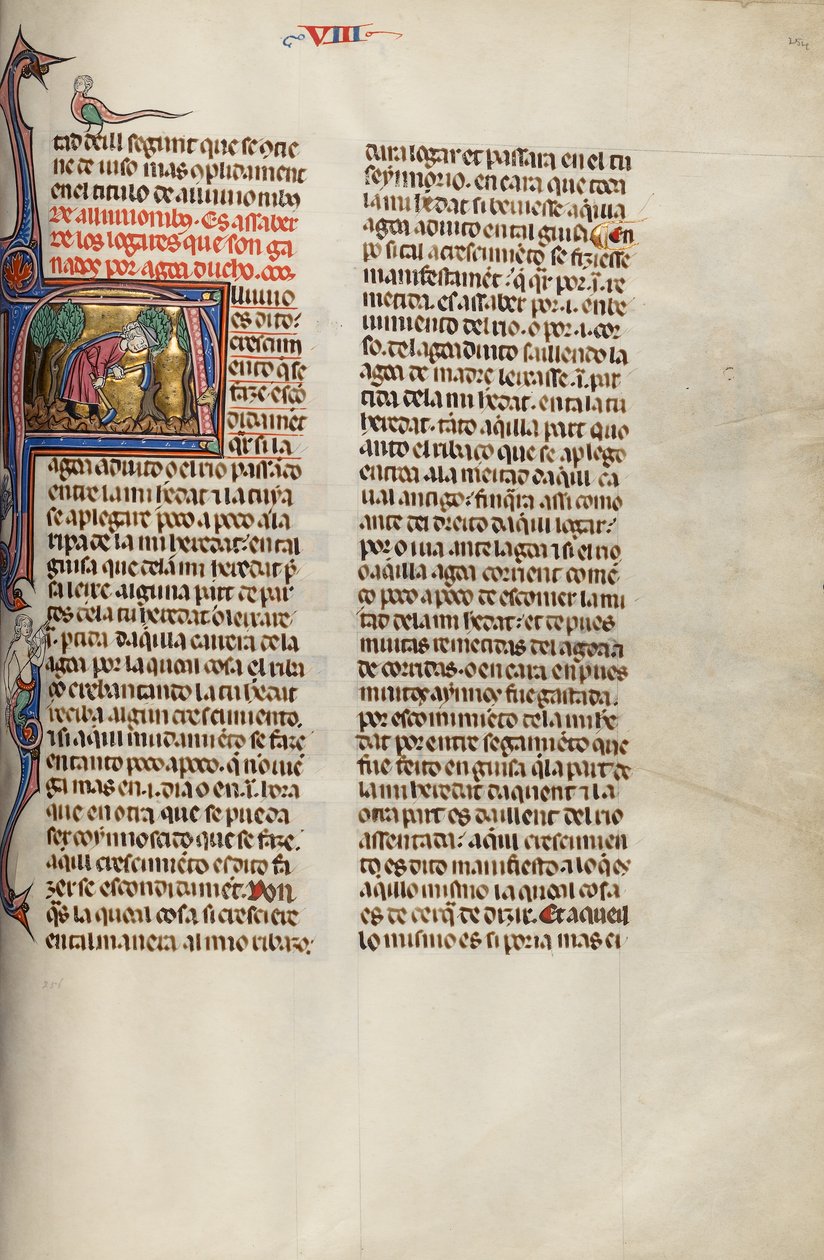 VIII
254
tad deill segunt que se otie
ne de iuso mas oplidament
en el titulo de alluuionibꝫ
De alluuionibꝫ. Es assaber
de los logares que son ga
nados por agoa ducho.
lluuio
es dito:
crescim
ento q̄ se
faze esco
didamēt
q̄r si la
agoa aduito o el rio passādo
entre la mi h̄edat ⁊ la tuya
se aplegare poco a poco a la
ripa de la mi heredat: en tal
guisa que dela mi heredat
saleire alguna part de par
tes dela tu heredat o leixare
daquilla carrera de la
agoa por la quoal cosa el riba
ço crebantando la tu h̄edat
reciba algun crescimiento.
⁊ si aqui mudamiēto se faze
en tanto poco a poco. q̄ no uiē
ga mas en .i. dia o en .i. hora
que en otra que se pueda
ser coynnoscido que se faze.
aqui crescimiēto es dito fa
zer se escondidamēt. Don
q̄s la quoal cosa si cresciere
en tal manera al mio ribazo:
dara logar et passara en el tu
seynnorio. en cara que toda
la mi h̄edat si beuiesse aquilla
agoa aduito en tal guisa. En
po si tal acrescimiēto se fiziesse
manifestamēt: q̄ q̄r por .i. re
metida. es assaber por .i. enbe
uimiento del rio. o por .i. cor
so. del agoa duito salliendo la
agoa de madre leixasse .i. par
tida dela mi h̄edat. en la tu
heredat. tāto aquilla part quo
anto el ribaço que se aplego
entroa a la meitad daquil ca
ual antigo: finq̄ra assi como
ante del dreito daquil logar:
por o iua ante la goa ⁊ si el rio
o aquilla agoa corrient comē
ço poco a poco de escomer la mi
tad dela mi h̄edat: et depues
muitas remetidas del agoa
de corridas. o en cara en pues
muitos aynnos fue gastada.
por escomimiēto dela mi he
dat por entre segamiēto que
fue feito en guisa q̄ la part de
la mi heredat daquent ⁊ la
otra part es daillent del rio
assentada: aqui crescimien
to es dito manifiesto a lo q̄ es
aquillo mismo la quoal cosa
es de cerq̄ de dizir. Et aqueil
lo mismo es si poria mas ci
256